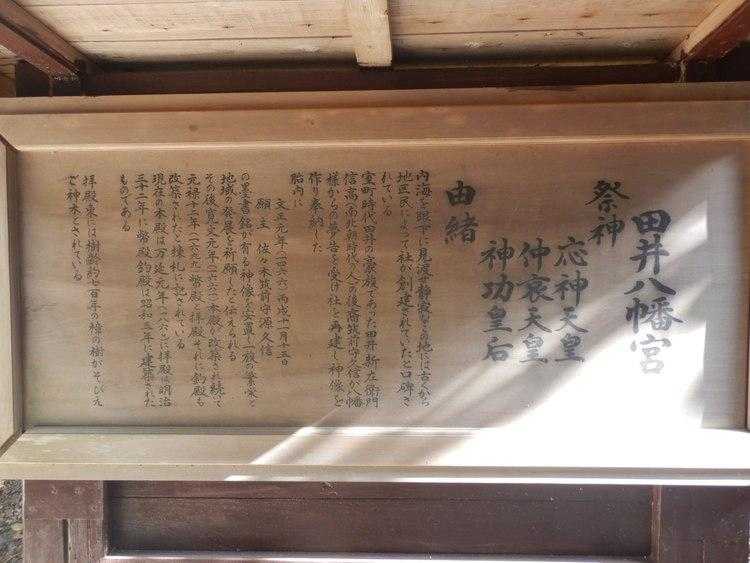 田井八幡宮
祭神
応神天皇
仲哀天皇
神功皇后
由緒
内海を眼下に見渡す静寂なこの地には古くから
地区民によって社が創建されていたと口碑さ
れている
室町時代田井の豪族であった田井新左衛門
信高(南北朝時代の人)の後裔筑前守久信が八幡
様からの夢告を受け社を再建し神像を
作り奉納した
胎内に
文正元年(一四六六)丙戌十一月十五日
願主 佐々木筑前守源久信
の墨書銘が有る神像を安置し一族の繁栄と
地域の発展を祈願したと伝えられる
その後寛文元年(一六六一)本殿が改築され続て
元禄十二年(一六九九)幣殿、拝殿それに釣殿も
改築されたと棟札に記されている
現在の本殿は万延元年(一八六〇)に拝殿は明治
三十二年に幣殿釣殿は昭和三年に建築された
ものである
拝殿東には樹齢約七百年の楠の樹がそびえ
ご神木とされている